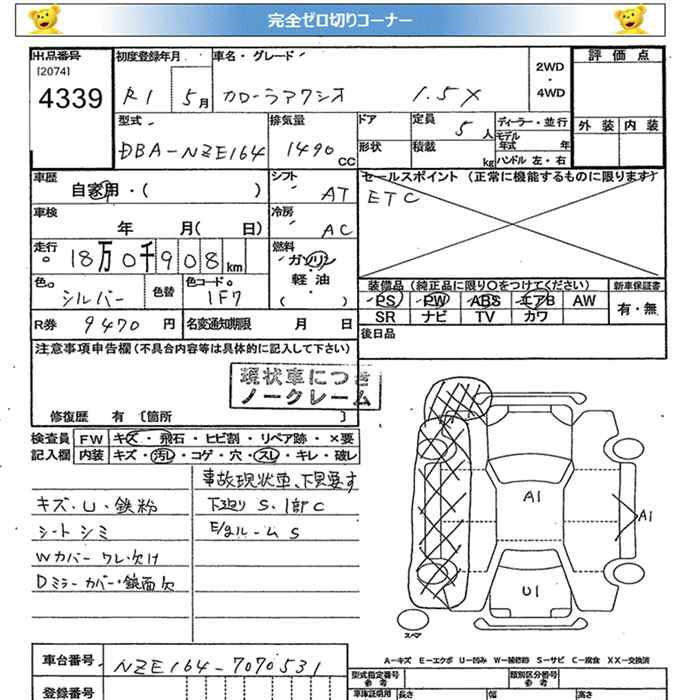 完全ゼロ切りコーナー
出品番号 初度登録年月 車名・グレード 2WD ・ 4WD 評価点
[2074]
4339 R1 5月 カローラアクシオ 1.5X 外装 内装
型式 排気量 ドア 定員 5人 ディーラー・並行
DBA-NZE164 1490 CC 形状 積載 kg モデル年式 年
ハンドル 左・右
車歴 自家用・( ) シフト AT セールスポイント (正常に機能するものに限ります)
ETC
車検 年 月( 日) 冷房 AC
走行 18万0千908km 燃料 ガソリン 軽油 ( )
色 シルバー 色替 色コード 1F7
装備品 (純正品に限り○をつけてください) 新車保証書
PS PW ABS エアB AW 有・無
SR ナビ TV カワ
R券 9470円 名変通知期限 月 日 後日品
注意事項申告欄 (不具合内容等は具体的に記入して下さい)
現状車につき
ノークレーム
修復歴 有 〔箇所 〕
検査員 FW キズ・飛石・ヒビ割・リペア跡・×要
記入欄 内装 キズ・汚レ・コゲ・穴・スレ・キレ・破レ
事故現状車、下見要す
キズ・U・鉄粉 下廻り S.1部C
シートシミ E/gルームS
Wカバー ワレ・欠け
Dミラーカバー・鏡面欠
A1
A1
U1
スペア
車台番号 NZE164-7070531
A-キズ E-エクボ U-凹み W-補修跡 S-サビ C-腐食 XX-交換済
型式指定番号 参考 類別区分番号 参考
登録番号 車庫証明用 長さ 幅 高さ